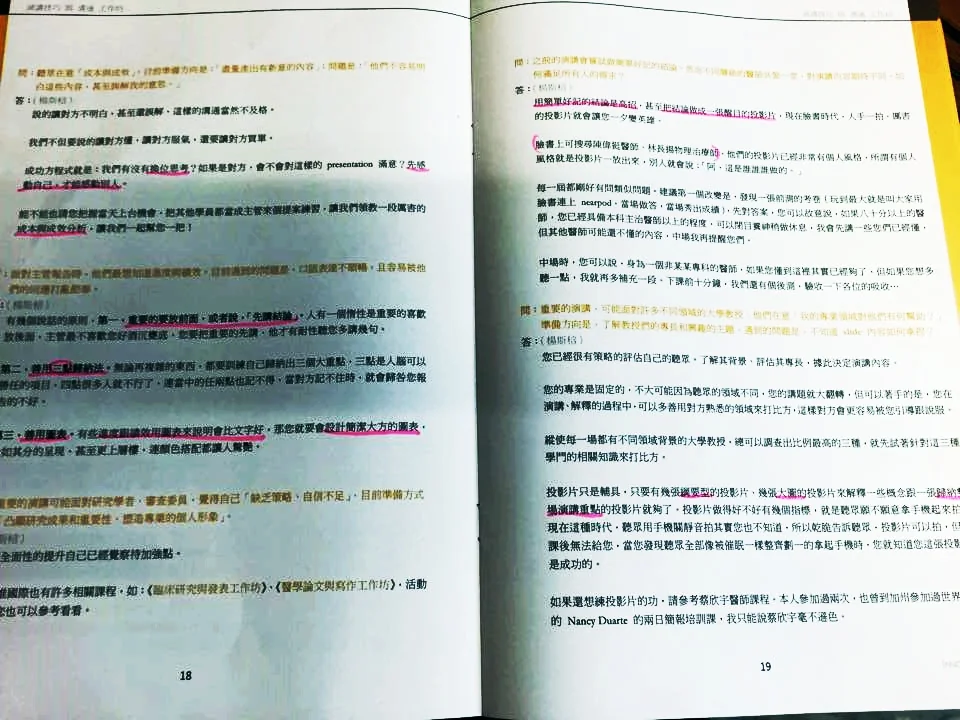 演講技巧
工作坊
問：聽眾在意「成本與成效」，目前準備方向是：「盡量產出有新意的內容」；問題是：「他們不容易明
白這些內容，甚至誤解我的意思。」
答：(楊斯棓)
說的讓對方不明白，甚至還誤解，這樣的溝通當然不及格。
我們不但要說的讓對方懂，讓對方服氣，還要讓對方買單。
成功方程式就是：我們有沒有換位思考？如果是對方，會不會對這樣的 presentation 滿意？先感
動自己，才能感動別人。
能不能也請您把握當天上台機會，把其他學員都當成主管來個提案練習，讓我們領教一段厲害的
成本與成效分析，讓我們一起幫您一把！
面對主管報告時，他們最想知道進度與績效，目前遇到的問題是，口語表達不順暢，且容易被他
們的問題打亂
(楊斯棓)
有幾個說話的原則，第一，重要的要放前面，或者說，「先講結論」。人有一個慣性是重要的喜歡
放後面，主管最不喜歡您好酒沉甕底，您要把重要的先講，他才有耐性聽您多講幾句。
第二，善用三點歸納法。無論再複雜的東西，都要訓練自己歸納出三個大重點，三點是人腦可以
勝任的項目，四點很多人就不行了，連當中的任兩點也記不得，當對方記不住時，就會歸咎您報
告的不好。
第三，善用圖表。有些進度跟績效用圖表來說明會比文字好，那您就要會設計簡潔大方的圖表，
如其分的呈現，甚至更上層樓，連顏色搭配都讓人驚艷。
重要的演講可能面對研究學者、審查委員，覺得自己「缺乏策略、自信不足」，目前準備方式
「凸顯研究成果和重要性，塑造專業的個人形象」。
斯棓)
全面性的提升自己已經覺察待加強點。
維國際也有許多相關課程，如：《臨床研究與發表工作坊》、《醫學論文與寫作工作坊》，活動
您也可以參考看看。
18
問：之前的演講會嘗試做簡單好記的結論，
何滿足所有人的需求？
答：(楊斯棓)
用簡單好記的結論是高招，甚至把結論做成一張醒目的投影片，現在臉書時代，人手一拍，厲害
的投影片就會讓您一夕變英雄。
臉書上可搜尋陳偉挺醫師、林長揚物理治療師，他們的投影片已經非常有個人風格，所謂有個人
風格就是投影片一放出來，別人就會說：「阿，這是誰誰誰做的。」
每一屆都剛好有問類似問題，建議第一個改變是，發現一張前測的考卷（玩到最大就是叫大家用
臉書連上 nearpod，當場做答，當場秀出成績），先對答案，您可以故意說，如果八十分以上的醫
師，您已經具備本科主治醫師以上的程度，可以閉目養神稍做休息，我會先講一些您們已經懂，
但其他醫師可能還不懂的內容，中場我再提醒您們。
中場時，您可以說，身為一個非某某專科的醫師，如果您懂到這裡其實已經夠了，但如果您想多
聽一點，我就再多補充一段。下課前十分鐘，我們還有個後測，驗收一下各位的吸收⋯
問：重要的演講，可能面對許多不同領域的大學教授，他們在意「我的專業領域對他們有何幫助？」
準備方向是，了解教授們的專長和興趣的主題，遇到的問題是，不知道 slide 內容如何拿捏？
答：(楊斯棓)
您已經很有策略的評估自己的聽眾，了解其背景，評估其專長，據此決定演講內容。
您的專業是固定的，不大可能因為聽眾的領域不同，您的講題就大翻轉，但可以著手的是，您在
演講、解釋的過程中，可以多善用對方熟悉的領域來打比方，這樣對方會更容易被您引導跟說服。
縱使每一場都有不同領域背景的大學教授，總可以調查出比例最高的三種，就先試著針對這三種
學門的相關知識來打比方。
投影片只是輔具，只要有幾張綱要型的投影片、幾張大圖的投影片來解釋一些概念跟一張歸納整
場演講重點的投影片就夠了。投影片做得好不好有幾個指標，就是聽眾願不願意拿手機起來拍
現在這種時代，聽眾用手機關靜音拍其實您也不知道，所以乾脆告訴聽眾，投影片可以拍，但
課後無法給您，當您發現聽眾全部像被催眠一樣整齊劃一的拿起手機時，您就知道您這張投影
是成功的。
如果還想練投影片的功，請參考蔡欣宇醫師課程，本人參加過兩次，也曾到加州參加過世界
的 Nancy Duarte 的兩日簡報培訓課，我只能說蔡欣宇毫不遜色。
19